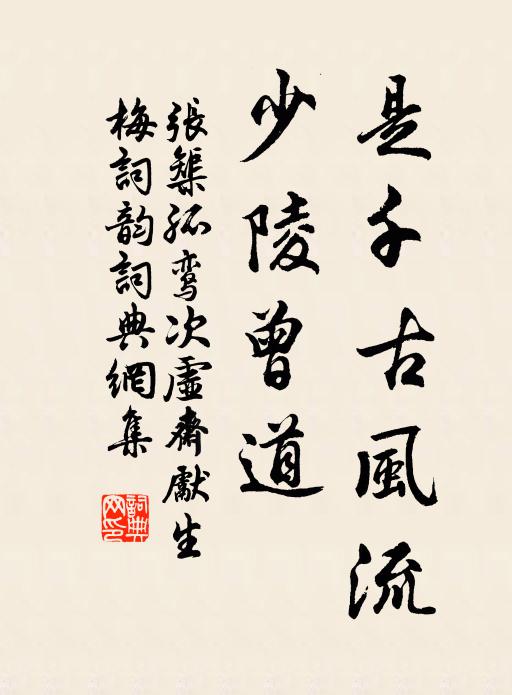 是千古風流
少陵曾道
張榘孤鸾次虛齋獻生
梅詞韵詞典網集
詞典网印